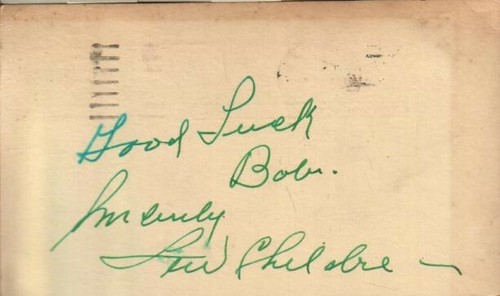 Good Luck
Bob.
Sincerely
Lew Childre